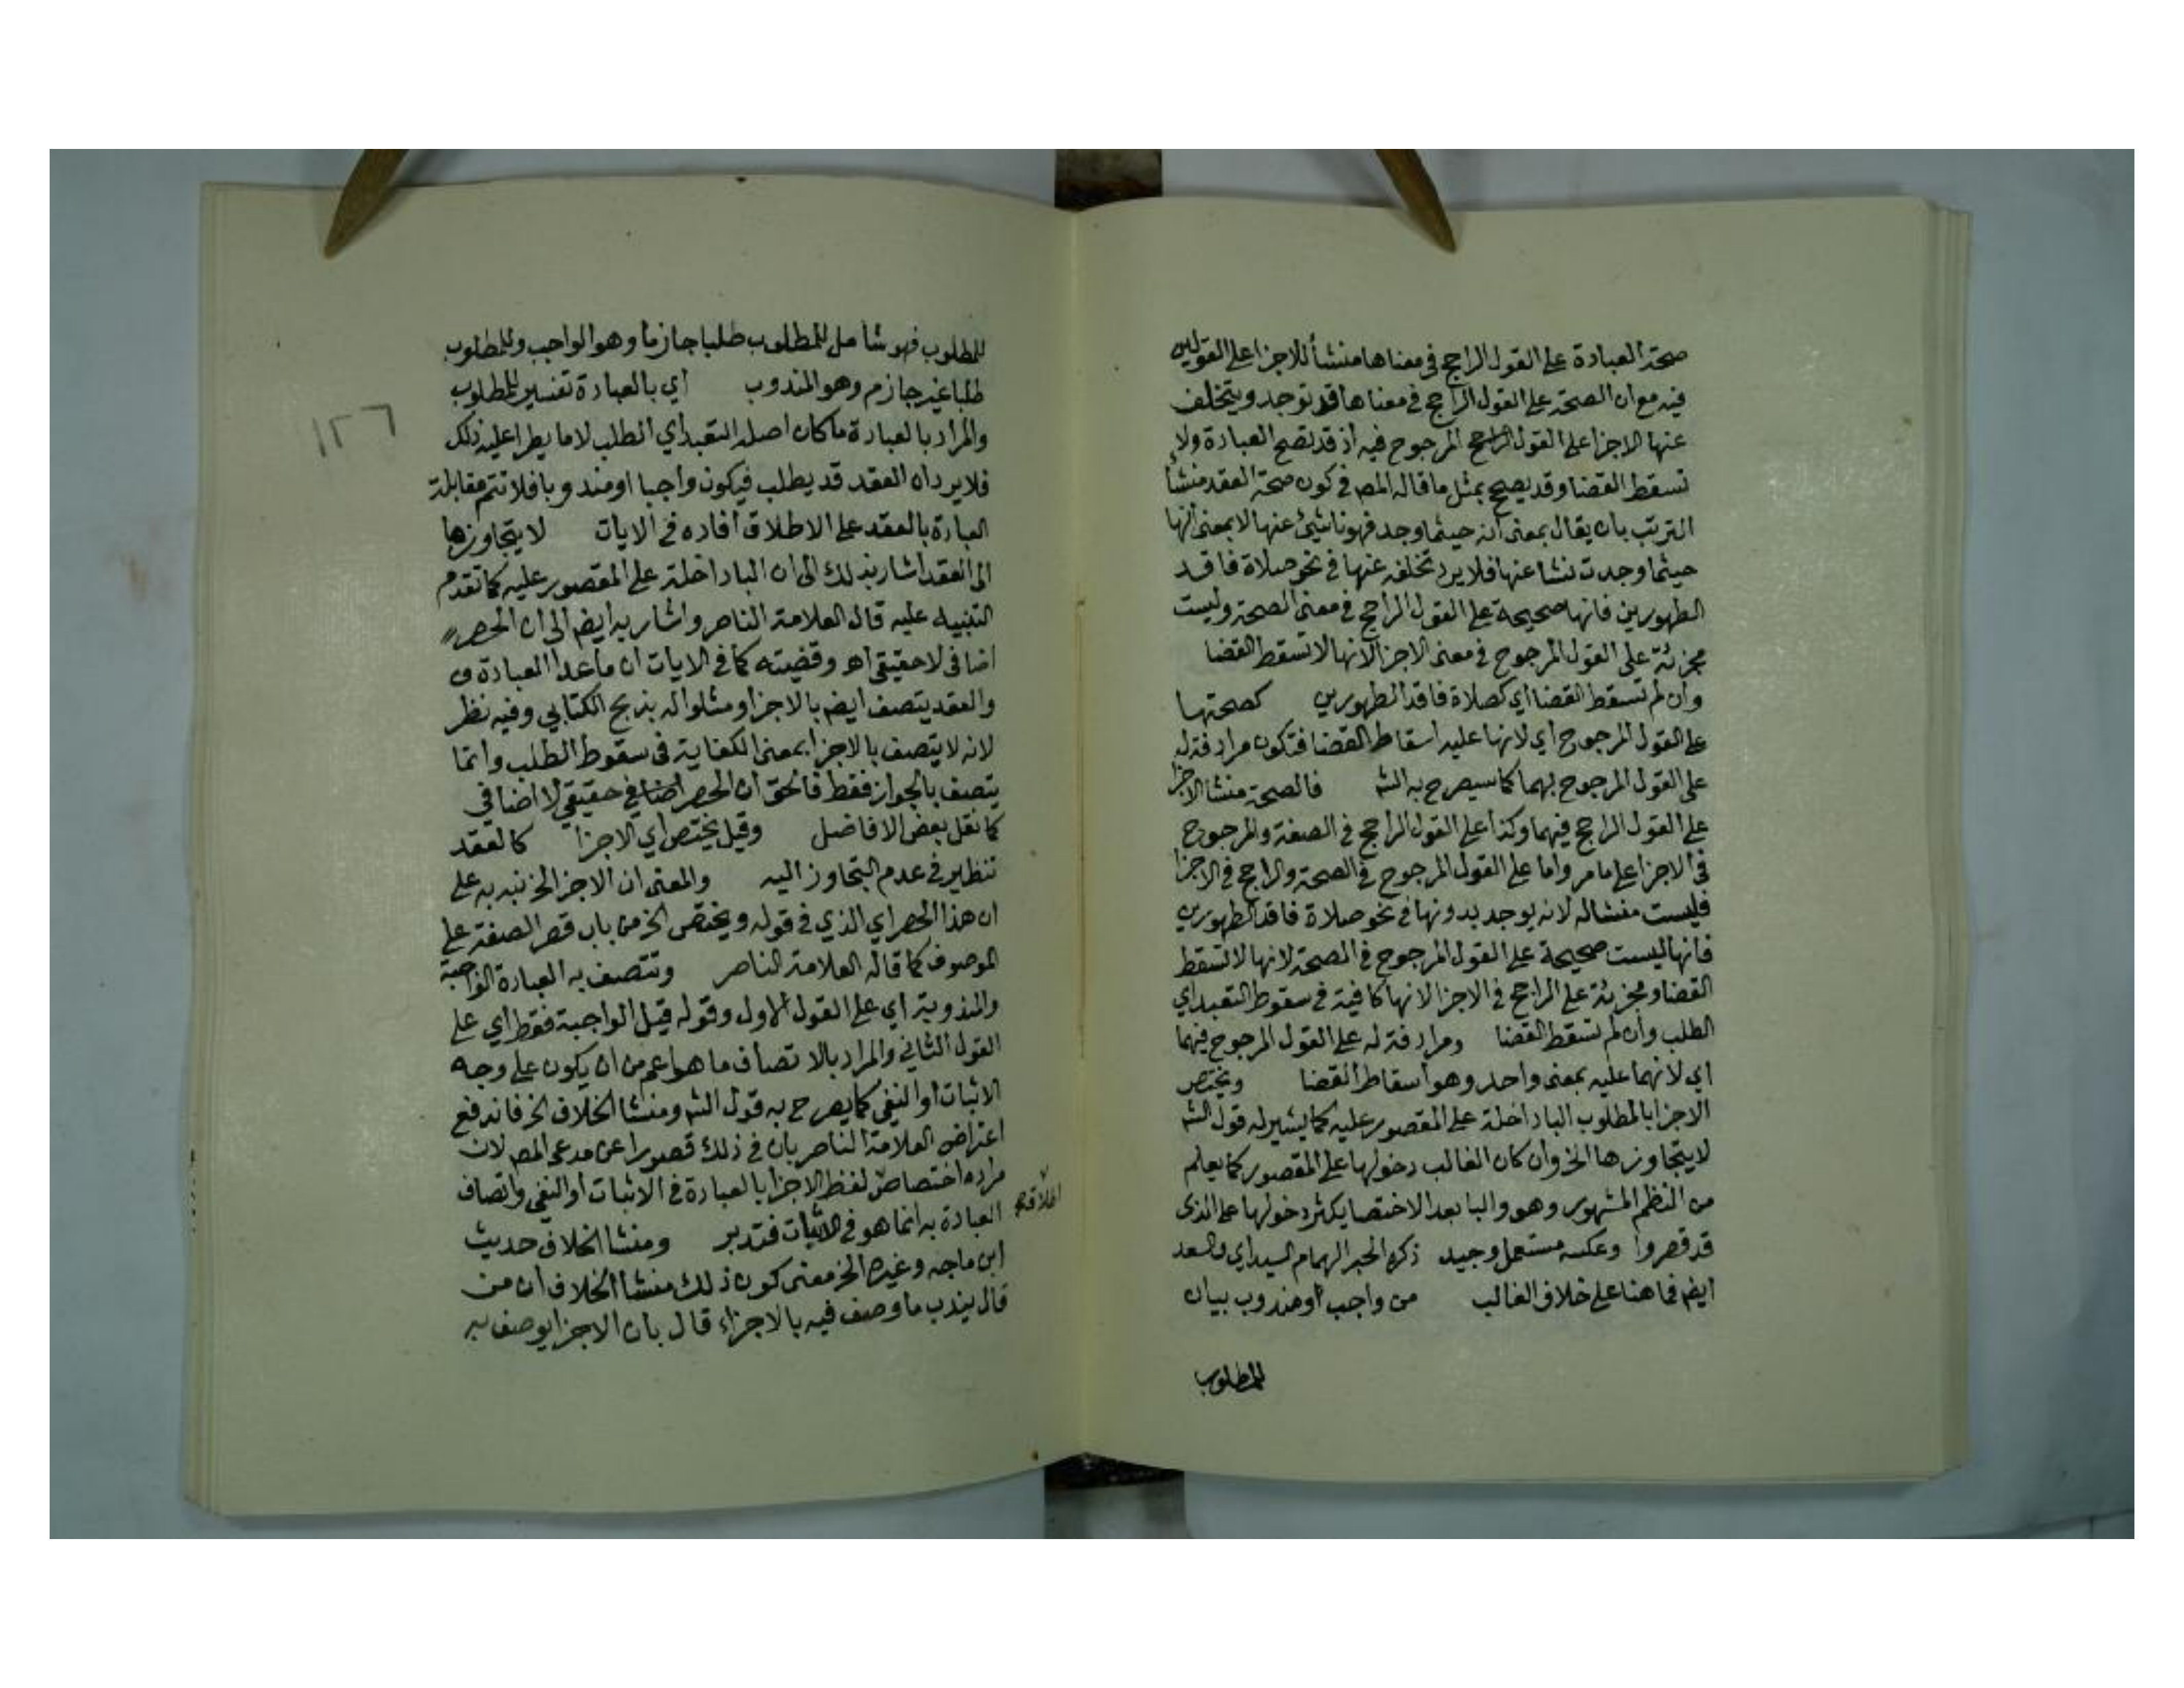 صحة العبادة على القول الراجح في معناها منشأ للاجزا على القولين
فيه مع ان الصحة على القول الراجح في معناها قد توجد ويتخلف
عنها الاجزا على القول الراجح المرجوح فيه اذ قد تصح العبادة ولا
تسقط القضا وقد يصح بمثل ما قاله المص في كون صحة العقد منشأ
الترتب بان يقال بمعنى انه حيثما وجد فهو ناشئ عنها لا بمعنى انها
حيثما وجدت نشا عنها فلا يرد تخلفه عنها في نحو صلاة فاقد
الطهورين فانها صحيحة على القول الراجح في معنى الصحة وليست
مجزئة على القول المرجوح في معنى الاجزا لانها لا تسقط القضا
وان لم تسقط القضا اي كصلاة فاقد الطهورين كصحتها
على القول المرجوح اي لانها عليه اسقاط القضا فتكون مرادفة له
على القول المرجوح بهما كما سيصرح به الشه فالصحة منشا الاجزا
على القول الراجح فيهما وكذا على القول الراجح في الصفة والمرجوح
في الاجزا على ما مر واما على القول المرجوح في الصحة والراجح في الاجزا
فليست منشاله لانه يوجد بدونها في نحو صلاة فاقد الطهورين
فانها ليست صحيحة على القول المرجوح في الصحة لانها لا تسقط
القضا ومجزئة على الراجح في الاجزا لانها كافية في سقوط التعبد اي
الطلب وان لم تسقط القضا ومرادفة له على القول المرجوح فيهما
اي لانهما عليه بمعنى واحد وهو اسقاط القضا ويختص
الاجزا بالمطلوب البا داخلة على المقصور عليه كما يشير له قول الشه
لا يتجاوزها الخ وان كان الغالب دخولها على المقصور كما يعلم
من النظم المشهور وهو والبا بعد الاختصا يكثر دخولها على الذى
قد قصروا وعكسه مستعمل وجيد ذكره الحبر الهمام السيد اي والسعد
ايضم فما هنا على خلاف الغالب من واجب او مندوب بيان
للمطلوب
١٢٦
للمطلوب فهو شامل للمطلوب طلبا جازما وهو الواجب وللمطلوب
طلبا غير جازم وهو المندوب اي بالعبادة تفسير للمطلوب
والمراد بالعبادة ما كان اصله التعبد اي الطلب لا ما يطرا عليه ذلك
فلا يرد ان العقد قد يطلب فيكون واجبا او مندوبا فلا تتم مقابلة
العبادة بالعقد على الاطلاق افاده في الايات لا يتجاوزها
الى العقد اشار بذلك الى ان البا داخلة على المقصور عليه كما تقدم
التنبيه عليه قال العلامة الناصر واشار به ايضم الى ان الحصر
اضافى لا حقيقى اهـ وقضيته كما في الايات ان ما عدا العبادة
والعقد يتصف ايضم بالاجزا ومثلوا له بذبح الكتابي وفيه نظر
لانه لا يتصف بالاجزا بمعنى الكفاية في سقوط الطلب وانما
يتصف بالجواز فقط فالحق ان الحصر اضافي حقيقي لا اضافي
كما نقل بعض الافاضل وقيل يختص اي الاجزا كالعقد
تنظير في عدم التجاوز اليه والمعنى ان الاجزا الخ نبه به على
ان هذا الحصر اي الذي في قوله ويختص الخ من باب قصر الصفة على
الموصوف كما قاله العلامة الناصر وتتصف به العبادة الواجبة
والمندوبة اي على القول الاول وقوله قيل الواجبة فقط اي على
القول الثاني والمراد بالاتصاف ما هو اعم من ان يكون على وجه
الاثبات او النفي كما يصرح به قول الشه ومنشا الخلاف الخ فاندفع
اعتراض العلامة الناصر بان في ذلك قصورا عن مدعى المص لان
مراده اختصاص لفظ الاجزا بالعبادة في الاثبات او النفي واتصاف
العبادة به انما هو في الاثبات فتدبر ومنشا الخلاف حديث
ابن ماجه وغيره الخ معنى كون ذلك منشا الخلاف ان من
قال يندب ما وصف فيه بالاجزاء قال بان الاجزا يوصف به